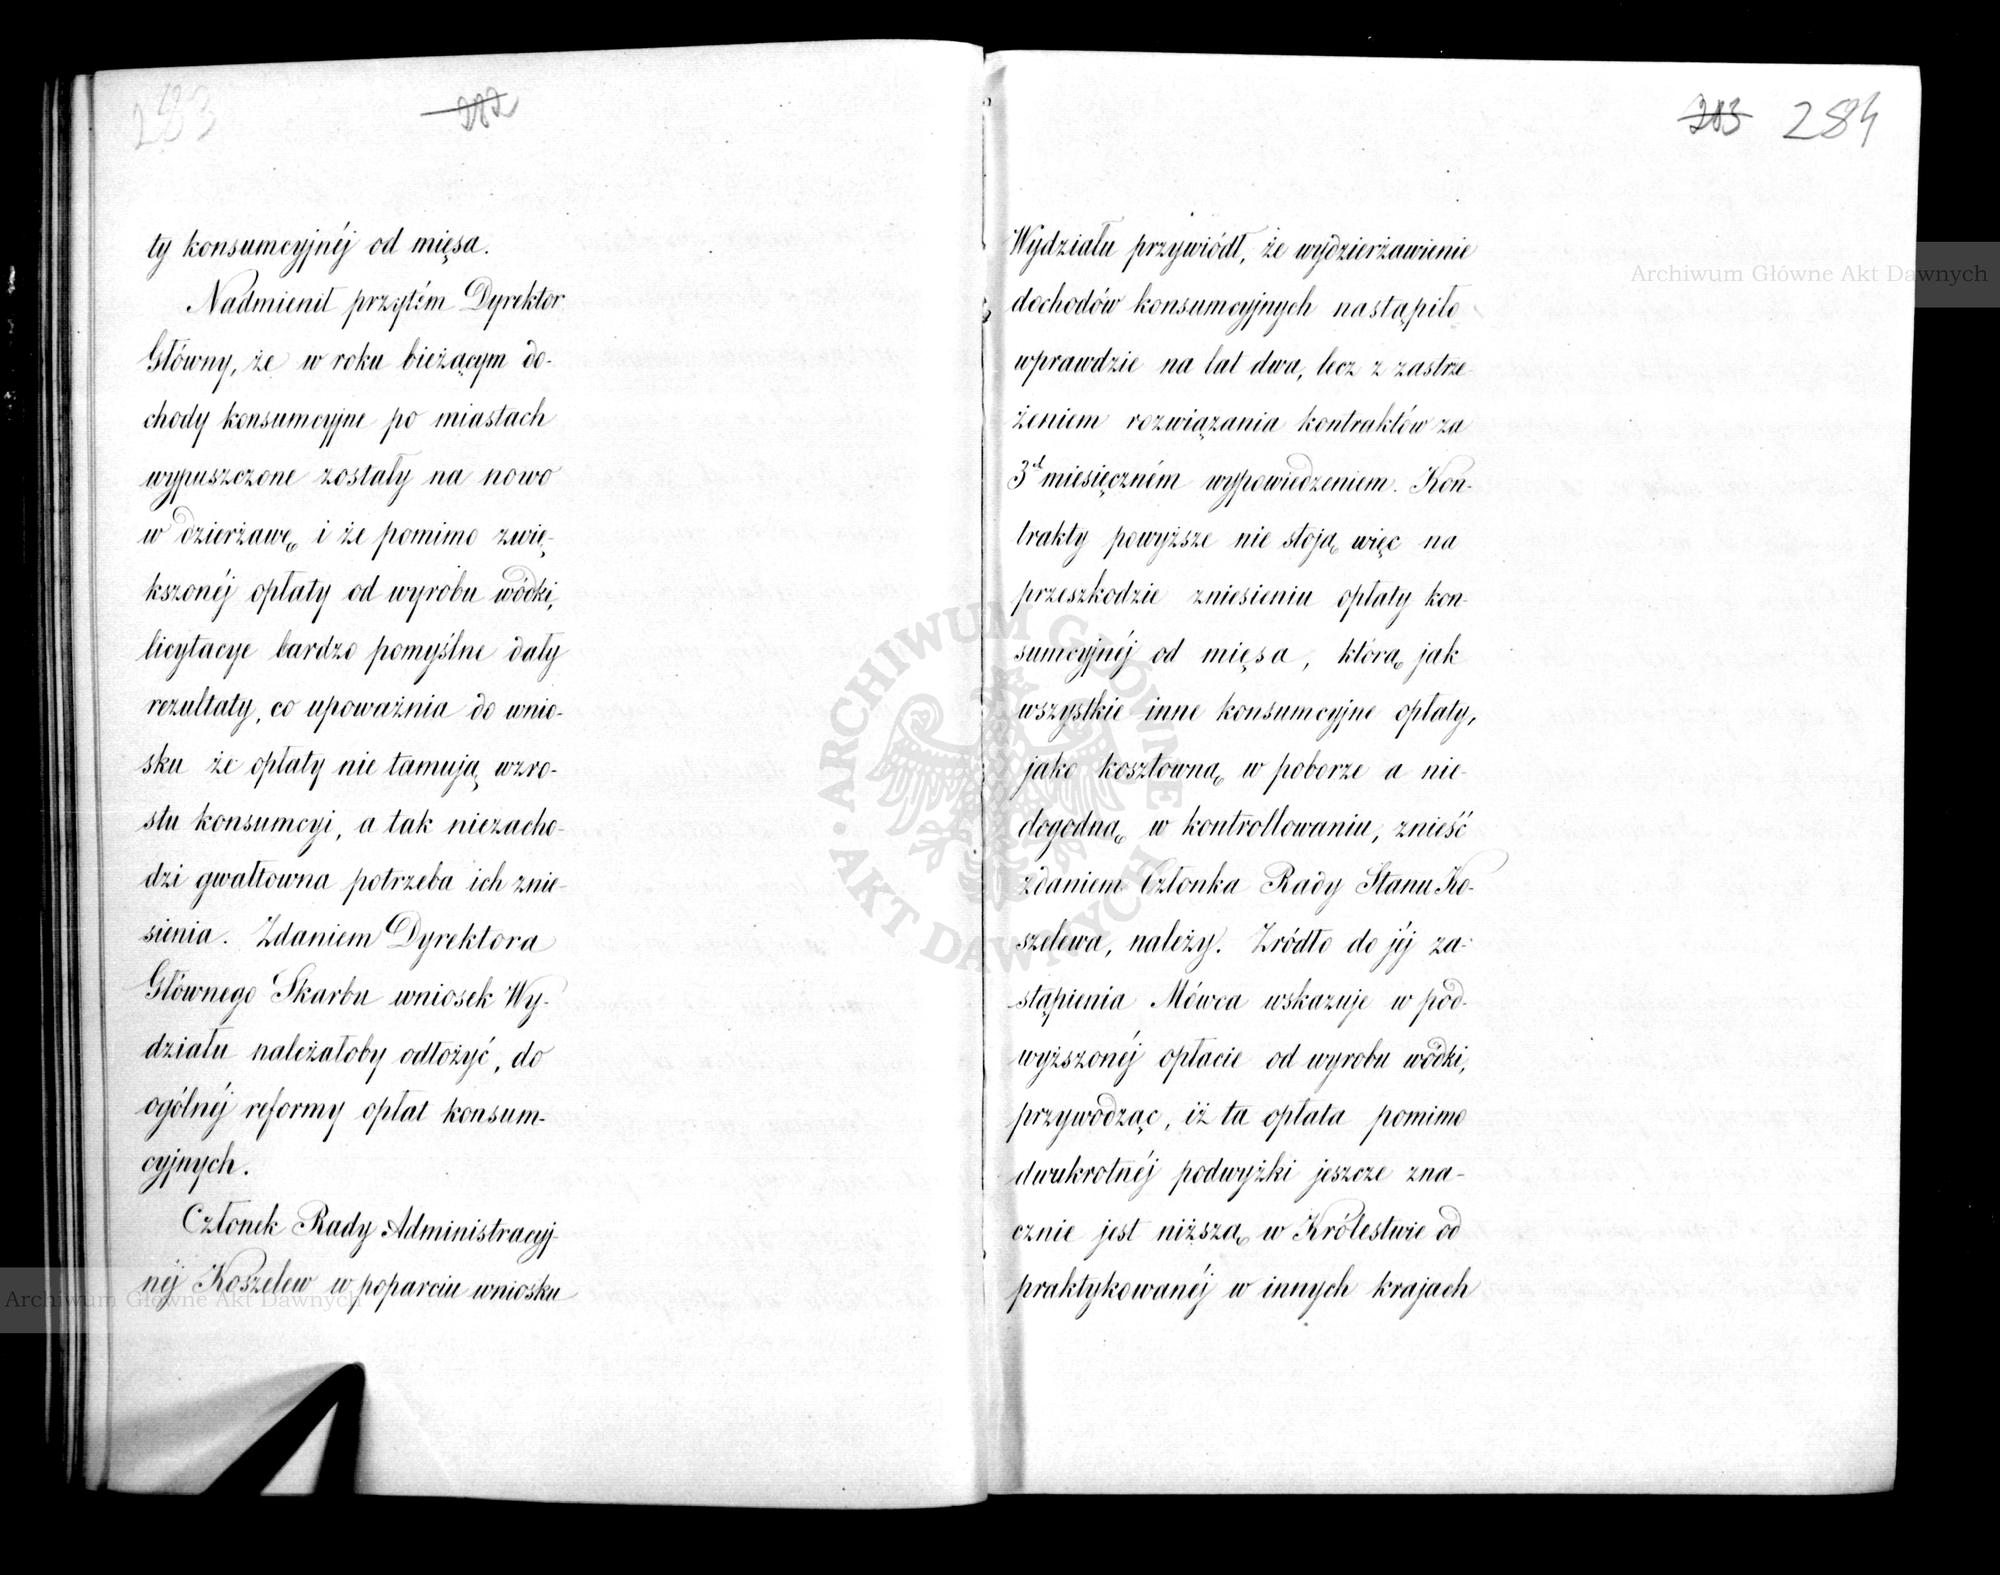 283
282
ty konsumcyjnéj od mięsa.
Nadmienił przytém Dyrektor
Główny, że w roku bieżącym do-
chody konsumcyjne po miastach
wypuszczone zostały na nowo
w dzierżawę i że pomimo zwię-
kszonéj opłaty od wyrobu wódki,
licytacye bardzo pomyślne dały
rezultaty, co upoważnia do wnio-
sku że opłaty nie tamują wzro-
stu konsumcyi, a tak niezacho-
dzi gwałtowna potrzeba ich znie-
sienia. Zdaniem Dyrektora
Głównego Skarbu wniosek Wy-
działu należałoby odłożyć, do
ogólnéj reformy opłat konsum-
cyjnych.
Członek Rady Administracyj-
néj Koszelew w poparciu wniosku
Archiwum Główne Akt Dawnych
283 284
Wydziału przywiódł, że wydzierżawienie
Archiwum Główne Akt Dawnych
dochodów konsumcyjnych nastąpiło
wprawdzie na lat dwa, lecz z zastrze-
żeniem rozwiązania kontraktów za
3ch miesięczném wypowiedzeniem. Kon-
trakty powyższe nie stoją więc na
przeszkodzie zniesieniu opłaty kon-
sumcyjnéj od mięsa, którą jak
wszystkie inne konsumcyjne opłaty,
jako kosztowną w poborze a nie-
dogodną w kontrollowaniu, znieść
zdaniem Członka Rady Stanu Ko-
szelewa, należy. Zródło do jéj za-
stąpienia Mówca wskazuje w pod-
wyższonéj opłacie od wyrobu wódki,
przywodząc, iż ta opłata pomimo
dwukrotnéj podwyżki jeszcze zna-
cznie jest niższą w Królestwie od
praktykowanéj w innych krajach
ARCHIWUM GŁÓWNE
AKT DAWNYCH